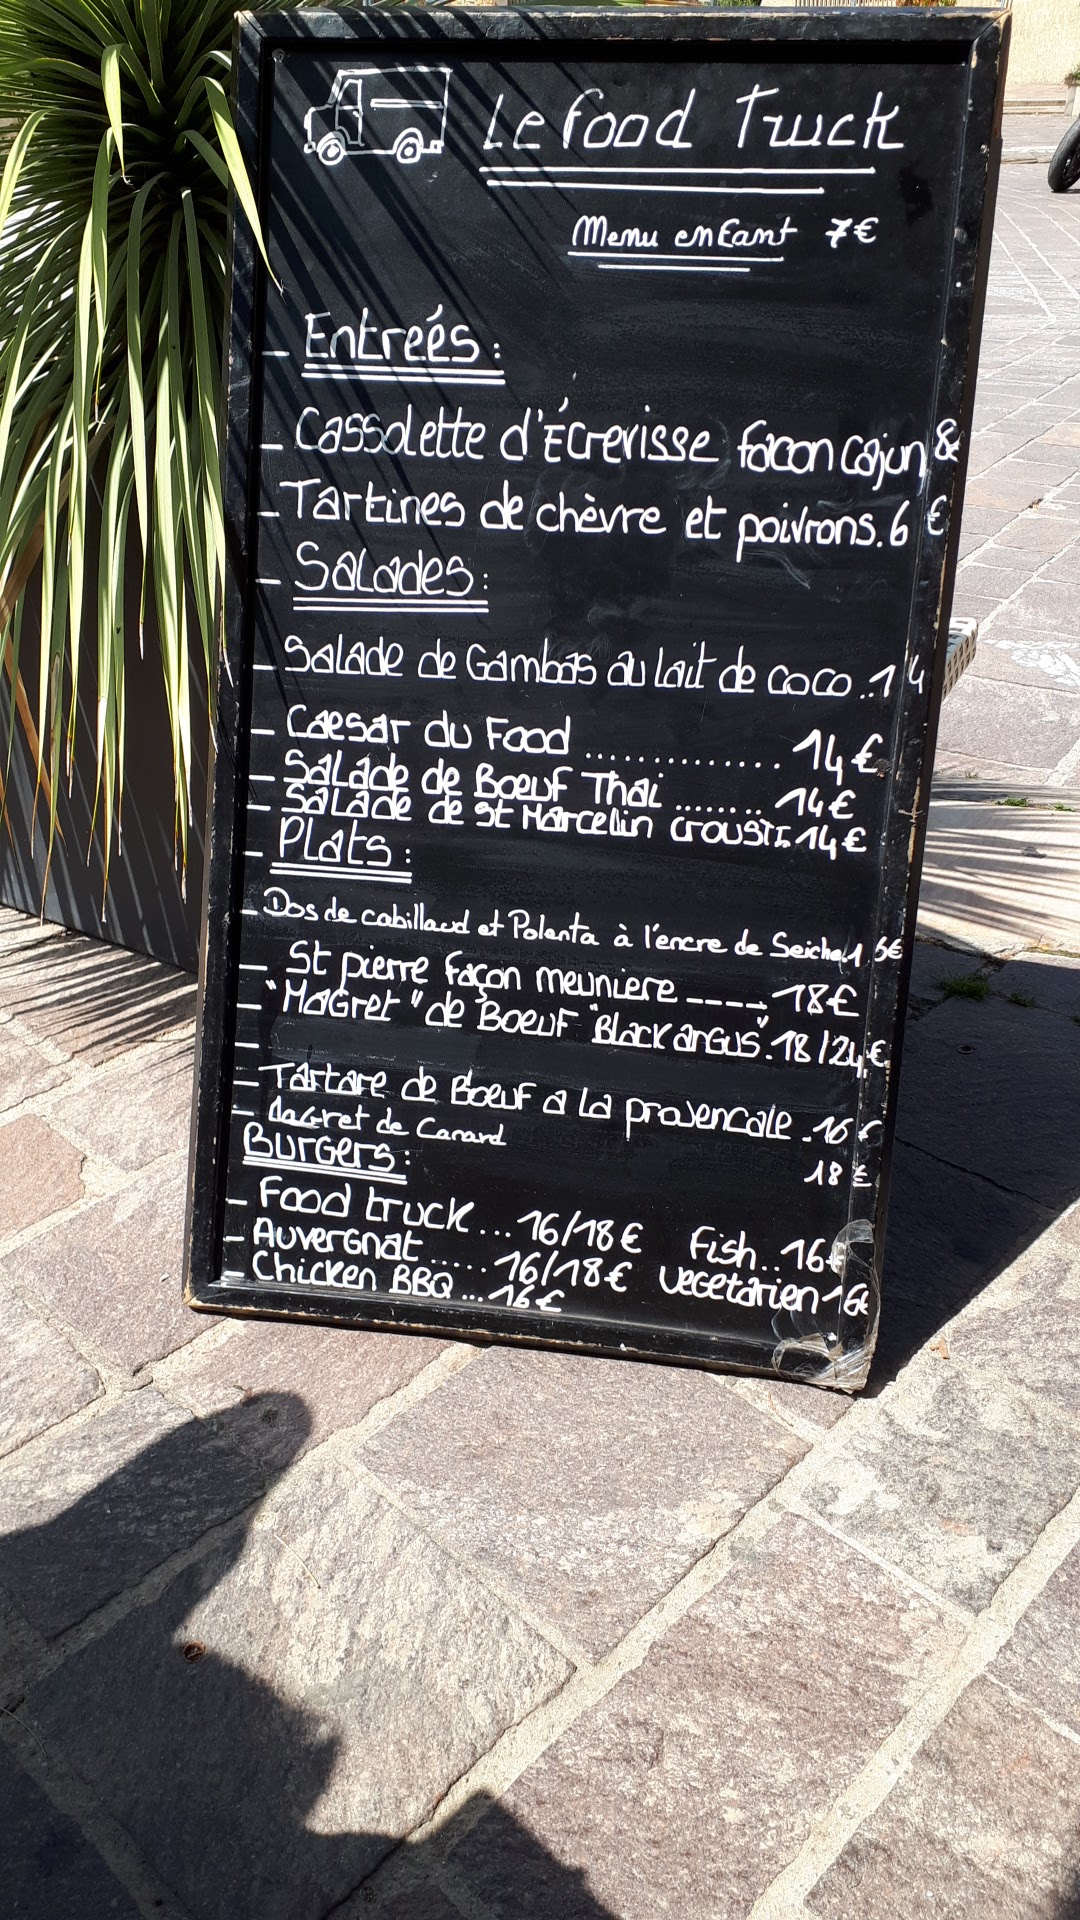 Le Food Truck
Menu enfant 7€
_ Entreés :
_ Cassolette d'Écrevisse facon cajun 8€
_ Tartines de chèvre et poivrons. 6 €
_ Salades :
_ Salade de Gambas au lait de coco .. 14
_ Caesar du Food .............. 14€
_ Salade de Bœuf Thai ........ 14€
_ Salade de St Marcellin crousti. 14€
_ Plats :
_ Dos de cabillaud et Polenta à l'encre de Seiche
_ St pierre façon meuniere ----- 18€
_ "Magret" de Boeuf "Black angus". 18/24€
_ Tartare de Boeuf a la provencale . 16 €
_ Magret de Canard 18 €
Burgers :
_ Food truck ... 16/18€ Fish .. 16€
_ Auvergnat ...... 16/18€ vegetarien 16€
_ Chicken BBQ ... 16€